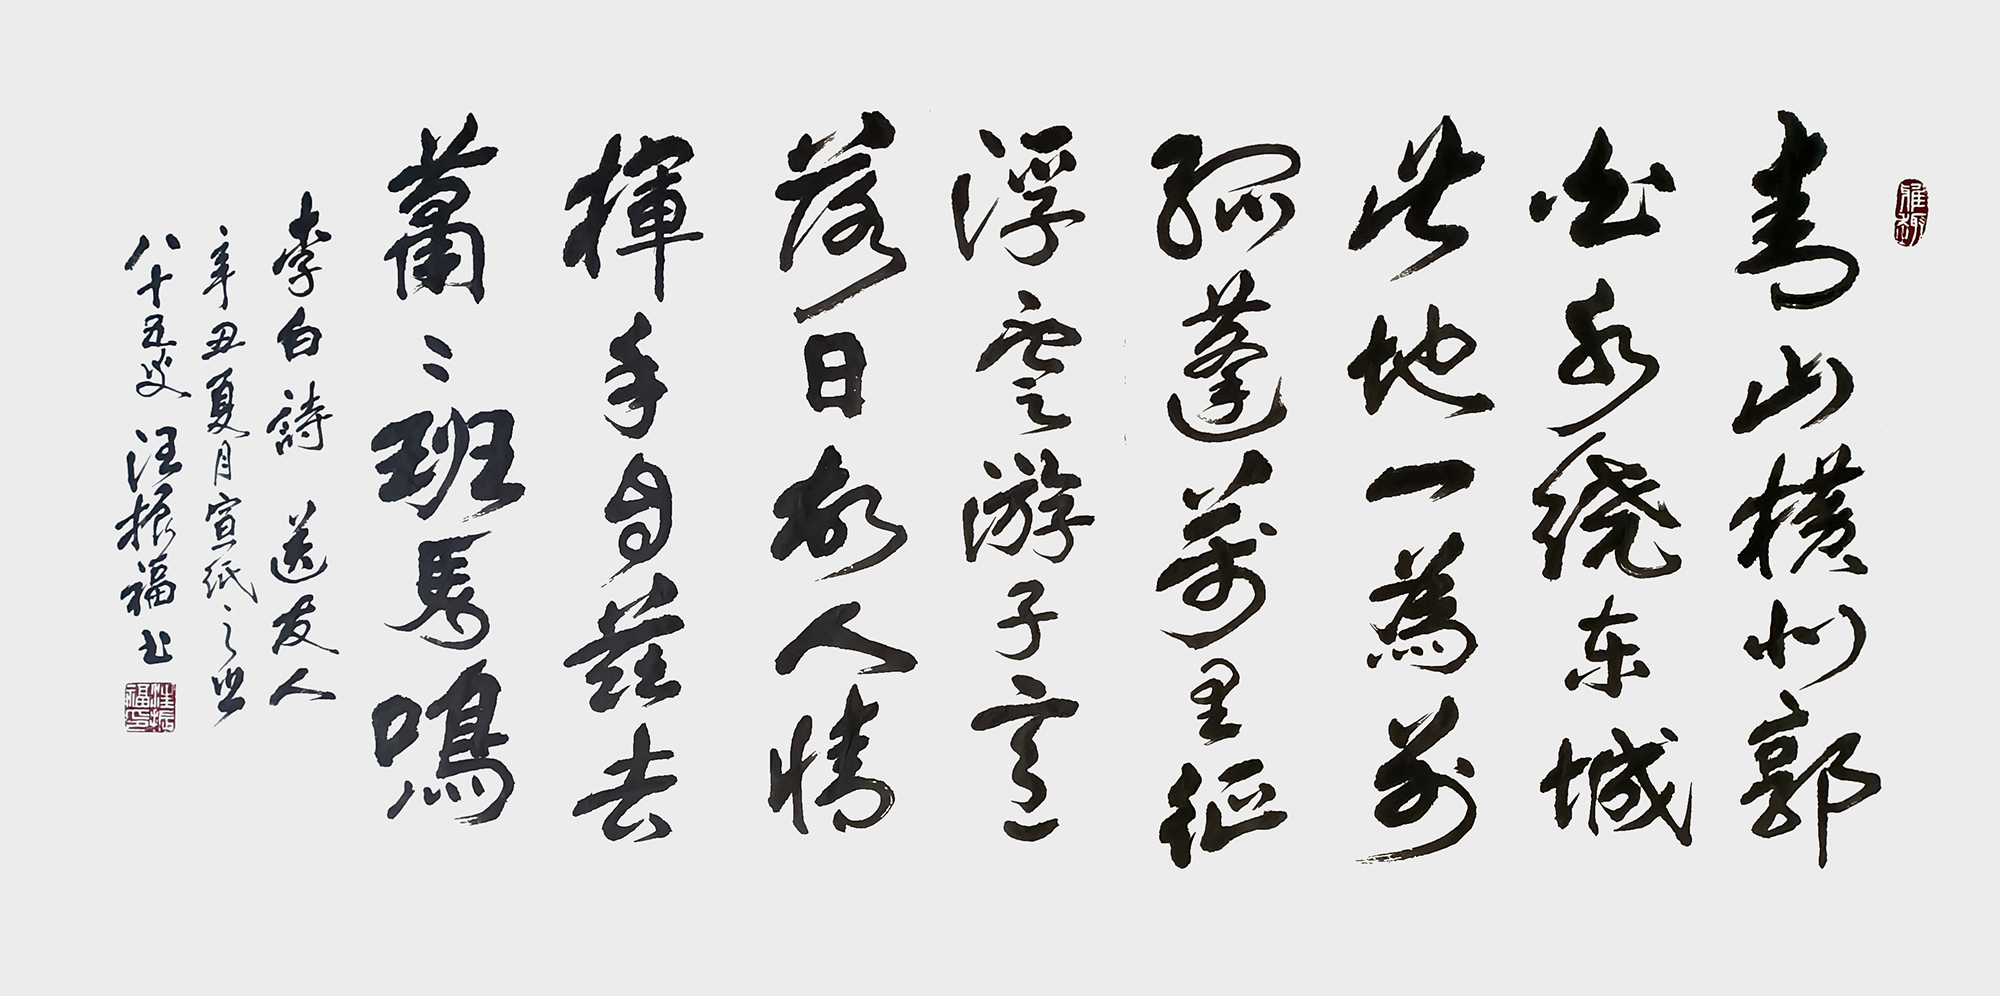 青山横北郭
白水绕东城
此地一為别
孤蓬萬里征
浮雲游子意
落日故人情
揮手自兹去
蕭〻班馬鳴
李白詩 送友人
辛丑夏月宣紙之乡
八十五叟 汪振福书
汪振福印